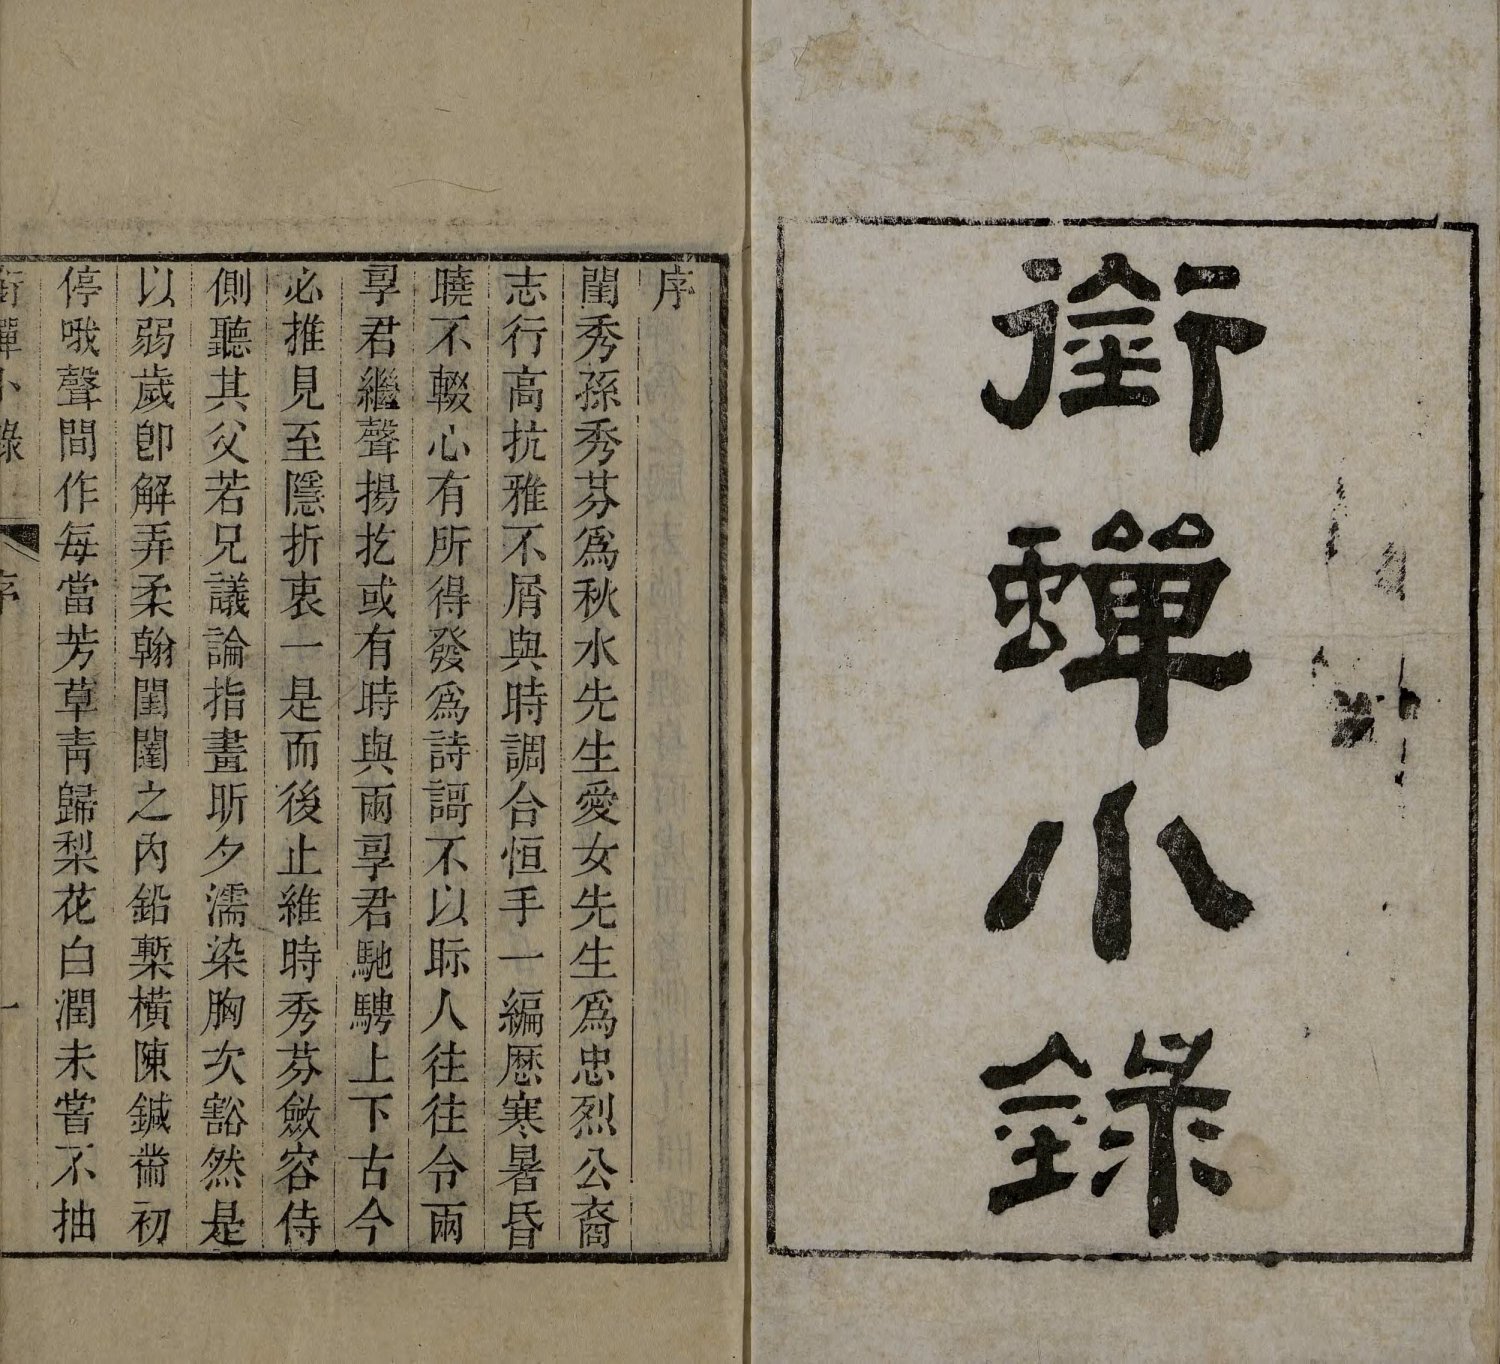 銜蟬小錄
序
閨秀孫秀芬爲秋水先生愛女先生爲忠烈公裔
志行高抗雅不屑與時調合恒手一編歷寒暑昏
曉不輟心有所得發爲詩謌不以眎人往往令兩
㝆君繼聲揚扢或有時與兩㝆君馳騁上下古今
必推見至隱折衷一是而後止維時秀芬斂容侍
側聽其父若兄議論指畫昕夕濡染胸次豁然是
以弱歲卽解弄柔翰閨闥之內鉛槧橫陳鍼黹初
停哦聲間作每當芳草靑歸梨花白潤未嘗不抽
銜蟬小錄
序
一